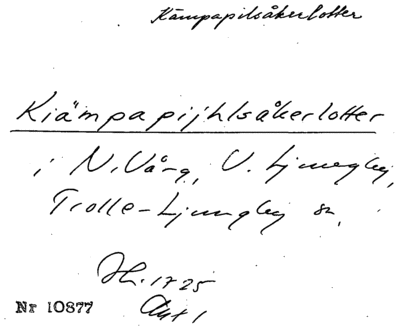 Kämpapilsåkerlotter
Kiämpapijhlsåkerlotter
i N. Vång, V. Ljungby,
Trolle-Ljungby sn,
1725
Akt 1
Nr 10877